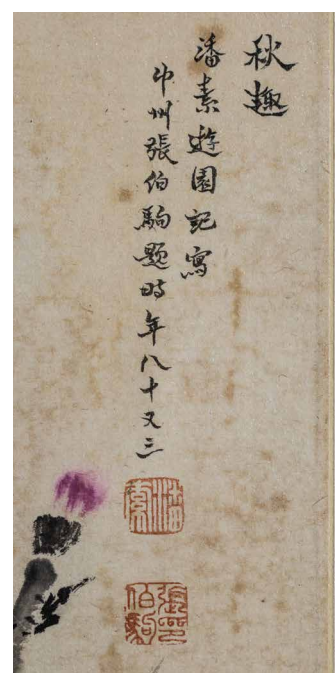 秋趣
潘素遊園記寫
中州張伯駒題時年八十又三
潘素
張伯駒印